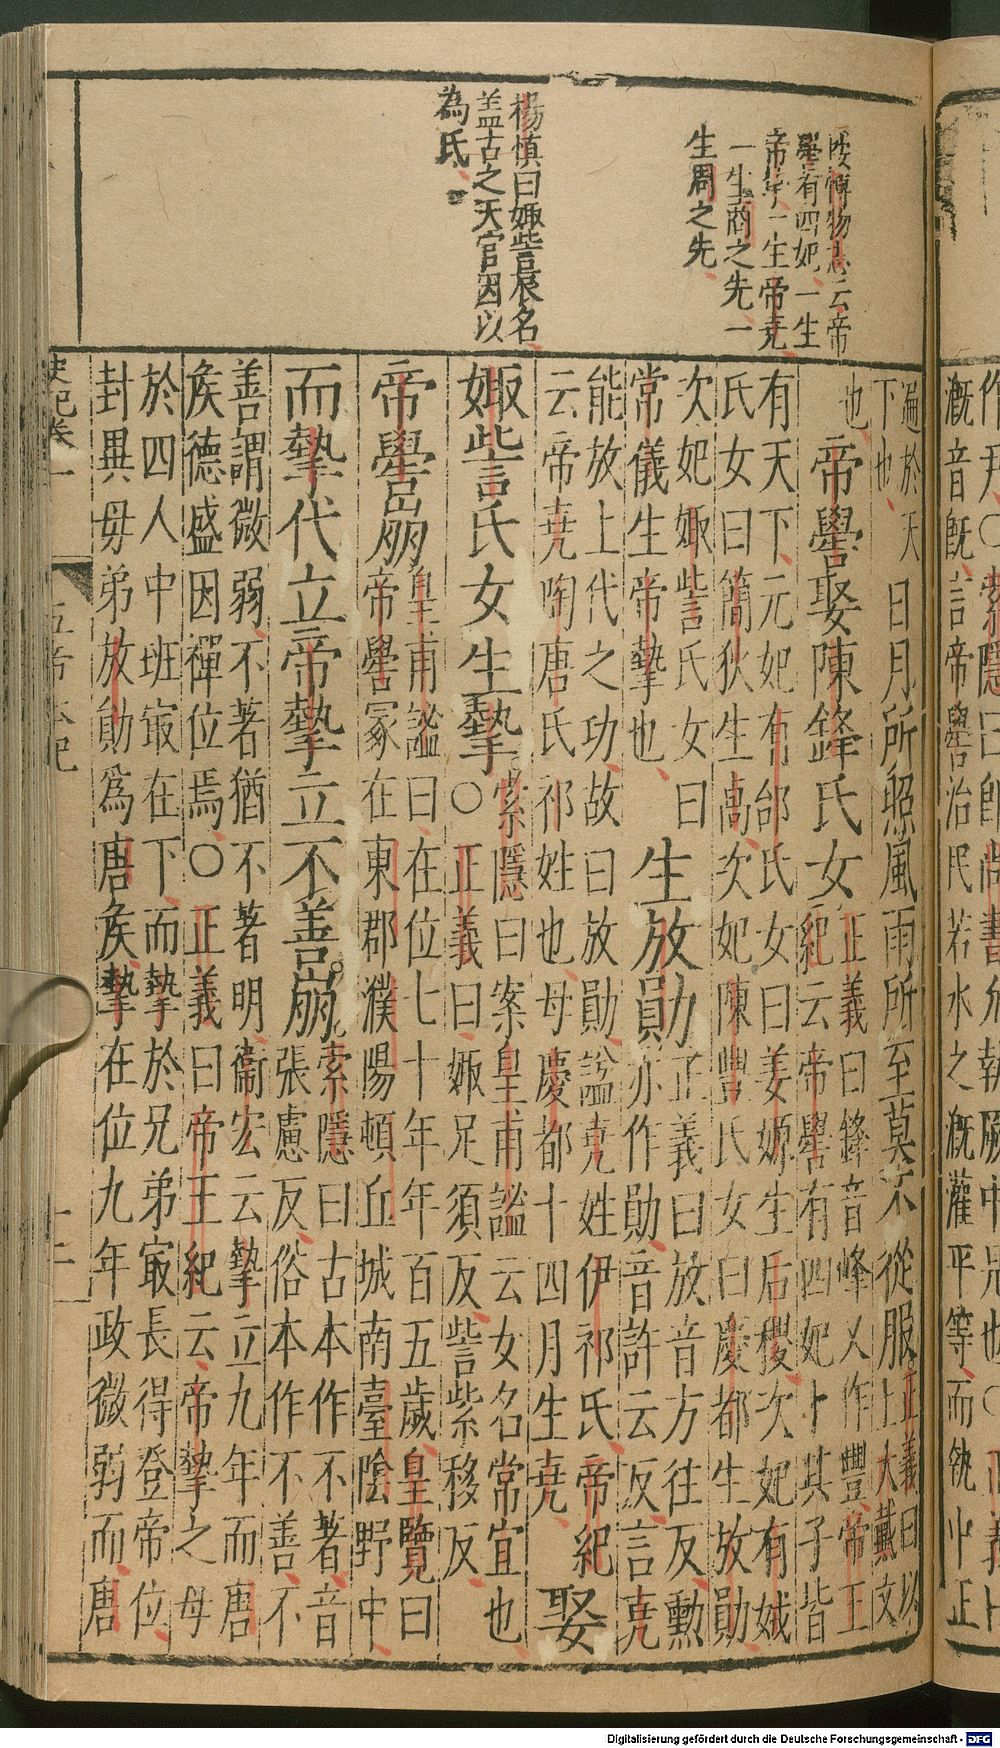 陵博物志云帝
嚳有四妃一生
帝摯一生帝堯
一生商之先一
生周之先
楊慎曰娵訾辰名
盖古之天官因以
為氏
遍於天
下也
日月所照風雨所至莫不從服
正義曰以
上大戴文
也
帝嚳娶陳鋒氏女
正義曰鋒音峰又作豐帝王
紀云帝嚳有四妃卜其子皆
有天下元妃有邰氏女曰姜嫄生后稷次妃有娀
氏女曰簡狄生卨次妃陳豐氏女曰慶都生放勛
次妃娵訾氏女曰
常儀生帝摯也
生放勛
正義曰放音方往反勲
亦作勛音許云反言堯
能放上代之功故曰放勛謚堯姓伊祁氏帝紀
云帝堯陶唐氏祁姓也母慶都十四月生堯
娶
娵訾氏女生摯
索隱曰案皇甫謐云女名常宜也
○正義曰娵足須反訾紫移反
帝嚳崩
皇甫謐曰在位七十年年百五歲皇覽曰
帝嚳冢在東郡濮陽頓丘城南臺陰野中
而摯代立帝摯立不善崩
索隱曰古本作不著音
張慮反俗本作不善不
善謂微弱不著猶不著明衞宏云摯立九年而唐
矦德盛因禪位焉○正義曰帝王紀云帝摯之母
於四人中班冣在下而摯於兄弟冣長得登帝位
封異母弟放勛爲唐矦摯在位九年政微弱而唐
史記卷一
五帝本紀
十二
漑音旣言帝嚳治民若水之漑灌平等而執中正
Digitalisierung gefördert durch die Deutsche Forschungsgemeinschaft - DFG